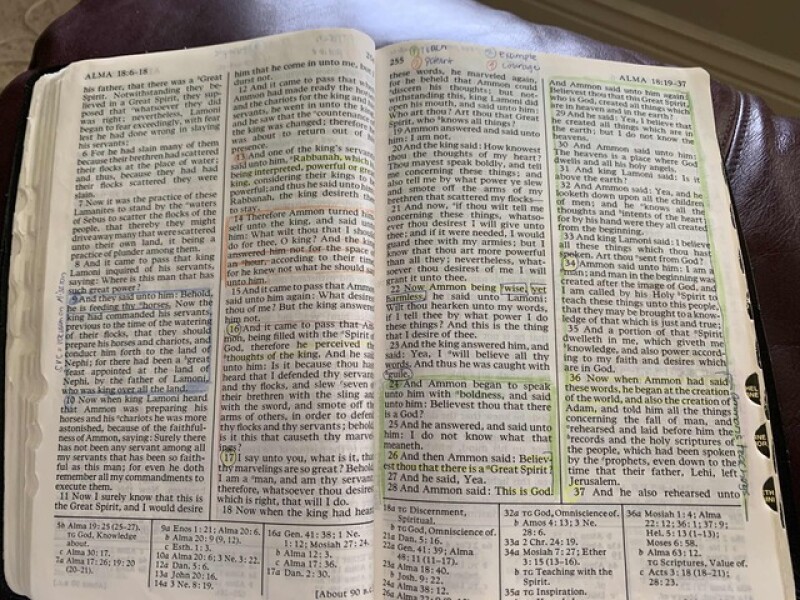 ALMA 18:6–18
his father, that there was a ᵃGreat
Spirit. Notwithstanding they be-
lieved in a Great Spirit, they sup-
posed that ᵇwhatsoever they did
was right; nevertheless, Lamoni
began to fear exceedingly, with fear
lest he had done wrong in slaying
his servants;
6 For he had slain many of them
because their brethren had scattered
their flocks at the place of water;
and thus, because they had had
their flocks scattered they were
slain.
7 Now it was the practice of these
Lamanites to stand by the ᵃwaters
of Sebus to scatter the flocks of the
people, that thereby they might
drive away many that were scattered
unto their own land, it being a
practice of plunder among them.
8 And it came to pass that king
Lamoni inquired of his servants,
saying: Where is this man that has
such great power?
9 And they said unto him: Behold,
he is feeding thy ᵃhorses. Now the
king had commanded his servants,
previous to the time of the watering
of their flocks, that they should
prepare his horses and chariots, and
conduct him forth to the land of
Nephi; for there had been a ᵇgreat
feast appointed at the land of
Nephi, by the father of Lamoni,
who was king over all the land.
10 Now when king Lamoni heard
that Ammon was preparing his
horses and his ᵃchariots he was more
astonished, because of the faithful-
ness of Ammon, saying: Surely there
has not been any servant among all
my servants that has been so faith-
ful as this man; for even he doth
remember all my commandments to
execute them.
11 Now I surely know that this is
the Great Spirit, and I would desire
him that he come in unto me, but I
durst not.
12 And it came to pass that when
Ammon had made ready the horses
and the chariots for the king and his
servants, he went in unto the king,
and he saw that the ᵃcountenance of
the king was changed; therefore he
was about to return out of his
presence.
13 And one of the king's servants
said unto him, ᵃRabbanah, which is,
being interpreted, powerful or great
king, considering their kings to be
powerful; and thus he said unto him:
Rabbanah, the king desireth thee to
stay.
14 Therefore Ammon turned him-
self unto the king, and said unto
him: What wilt thou that I should
do for thee, O king? And the king
answered him not for the space of
an ᵃhour, according to their time,
for he knew not what he should say
unto him.
15 And it came to pass that Ammon
said unto him again: What desirest
thou of me? But the king answered
him not.
16 And it came to pass that Am-
mon, being filled with the ᵃSpirit of
God, therefore he perceived the
ᵇthoughts of the king. And he said
unto him: Is it because thou hast
heard that I defended thy servants
and thy flocks, and slew ᶜseven of
their brethren with the sling and
with the sword, and smote off the
arms of others, in order to defend
thy flocks and thy servants; behold,
is it this that causeth thy marvel-
ings?
17 I say unto you, what is it, that
thy marvelings are so great? Behold,
I am a ᵃman, and am thy servant;
therefore, whatsoever thou desirest
which is right, that will I do.
18 Now when the king had heard
5b Alma 19:25 (25–27).
TG God, Knowledge
about.
c Alma 30:17.
7a Alma 17:26; 19:20
(20–21).
9a Enos 1:21; Alma 20:6.
b Alma 20:9 (9, 12).
c Esth. 1:3.
10a Alma 20:6; 3 Ne. 3:22.
12a Dan. 5:6.
13a John 20:16.
14a 3 Ne. 8:19.
16a Gen. 41:38; 1 Ne.
1:12; Mosiah 27:24.
b Alma 12:3.
c Alma 17:36.
17a Dan. 2:30.
[About 90 B.C.
255
① Teach
③ Example
④ Courage
ALMA 18:19–37
these words, he marveled again,
for he beheld that Ammon could
ᵃdiscern his thoughts; but not-
withstanding this, king Lamoni did
open his mouth, and said unto him:
Who art thou? Art thou that Great
Spirit, who ᵇknows all things?
19 Ammon answered and said unto
him: I am not.
20 And the king said: How knowest
thou the thoughts of my heart?
Thou mayest speak boldly, and tell
me concerning these things; and
also tell me by what power ye slew
and smote off the arms of my
brethren that scattered my flocks—
21 And now, ᵃif thou wilt tell me
concerning these things, whatso-
ever thou desirest I will give unto
thee; and if it were needed, I would
guard thee with my armies; but I
know that thou art more powerful
than all they; nevertheless, what-
soever thou desirest of me I will
grant it unto thee.
22 Now Ammon being ᵃwise, yet
harmless, he said unto Lamoni:
Wilt thou hearken unto my words,
if I tell thee by what power I do
these things? And this is the thing
that I desire of thee.
23 And the king answered him, and
said: Yea, I ᵃwill believe all thy
words. And thus he was caught with
guile.
24 And Ammon began to speak
unto him with ᵃboldness, and said
unto him: Believest thou that there
is a God?
25 And he answered, and said unto
him: I do not know what that
meaneth.
26 And then Ammon said: Believ-
est thou that there is a ᵃGreat Spirit?
27 And he said, Yea.
28 And Ammon said: This is God.
And Ammon said unto him again:
Believest thou that this Great Spirit,
who is God, created all things which
are in heaven and in the earth?
29 And he said: Yea, I believe that
he created all things which are in
the earth; but I do not know the
heavens.
30 And Ammon said unto him:
The heavens is a place where God
dwells and all his holy angels.
31 And king Lamoni said: Is it
above the earth?
32 And Ammon said: Yea, and he
looketh down upon all the children
of men; and he ᵃknows all the
thoughts and ᵇintents of the heart;
for by his hand were they all created
from the beginning.
33 And king Lamoni said: I believe
all these things which thou hast
spoken. Art thou ᵃsent from God?
34 Ammon said unto him: I am a
ᵃman; and man in the beginning was
created after the image of God, and
I am called by his Holy ᵇSpirit to
teach these things unto this people,
that they may be brought to a know-
ledge of that which is just and true;
35 And a portion of that ᵃSpirit
dwelleth in me, which giveth me
ᵇknowledge, and also power accord-
ing to my faith and desires which
are in God.
36 Now when Ammon had said
these words, he began at the creation
of the world, and also the creation of
Adam, and told him all the things
concerning the fall of man, and
ᵃrehearsed and laid before him the
ᵇrecords and the holy scriptures of
the people, which had been spoken
by the ᶜprophets, even down to the
time that their father, Lehi, left
Jerusalem.
37 And he also rehearsed unto
18a TG Discernment,
Spiritual.
b TG God, Omniscience of.
21a Dan. 5:16.
22a Gen. 41:39; Alma
48:11 (11–17).
23a Alma 18:40.
b Josh. 9:22.
24a Alma 38:12.
32a TG God, Omniscience of.
b Amos 4:13; 3 Ne.
28:6.
33a 2 Chr. 24:19.
34a Mosiah 7:27; Ether
3:15 (13–16).
b TG Teaching with the
Spirit.
35a TG Inspiration.
36a Mosiah 1:4; Alma
22:12; 36:1; 37:9;
Hel. 5:13 (1–13);
Moses 6:58.
b Alma 63:12.
TG Scriptures, Value of.
c Acts 3:18 (18–21);
28:23.